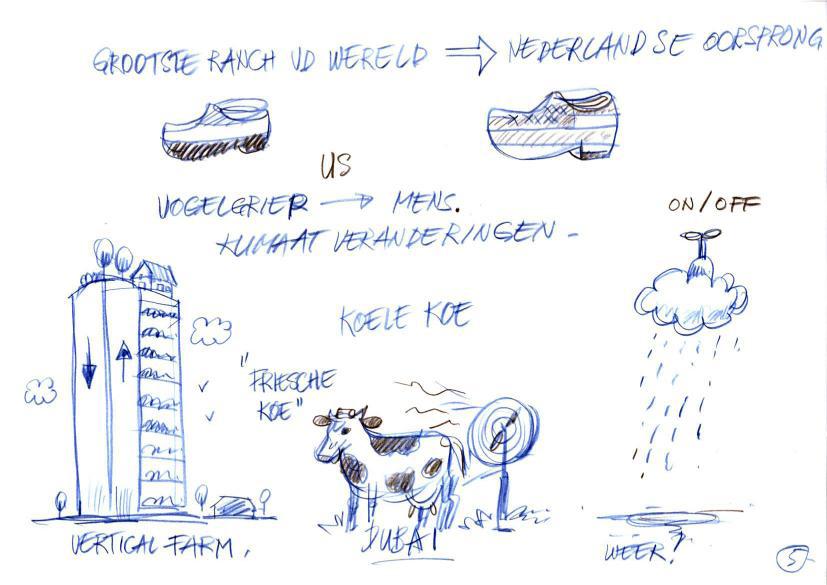 GROOTSTE RANCH VD WERELD → NEDERLANDSE OORSPRONG
US
VOGELGRIEP → MENS.
KLIMAAT VERANDERINGEN -
ON/OFF
KOELE KOE
"FRIESCHE
KOE"
VERTICAL FARM.
DUBAI
WEER?
5